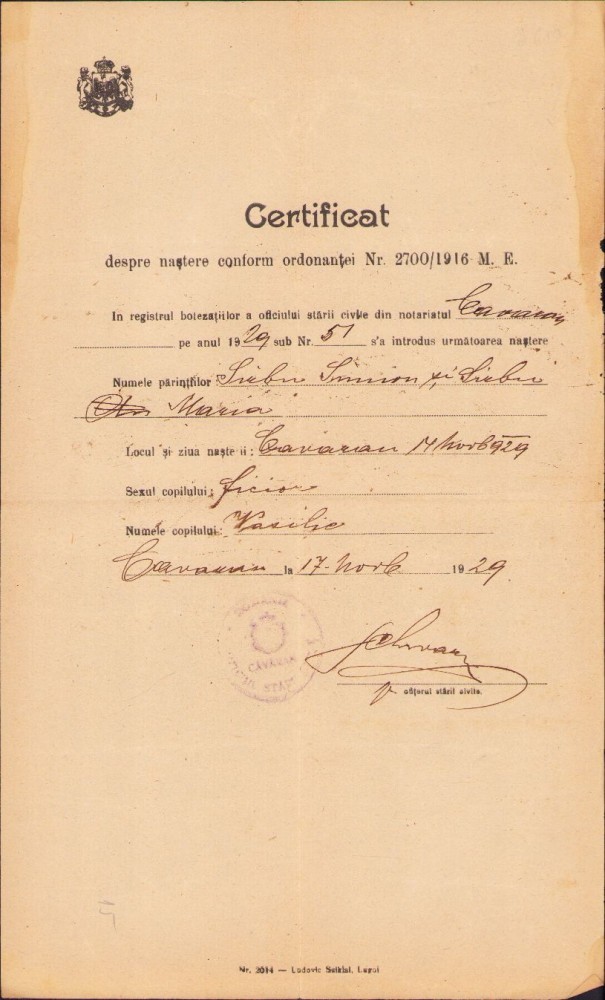 Certificat
despre naștere conform ordonanței Nr. 2700/1916 M. E.
In registrul botezaților a oficiului stării civile din notariatul Cavaran
pe anul 1929 sub Nr. 51 s'a introdus următoarea naștere
Numele părinților: Sirbu Simion și Sirbu
Maria
Locul și ziua nașterii: Cavaran 14 Novb 929
Sexul copilului: ficior
Numele copilului: Vasilie
Cavaran la 17. Novb 1929.
CAVARAN
p. ofițerul stării civile.
Nr. 2014 — Ludovic Lugoj